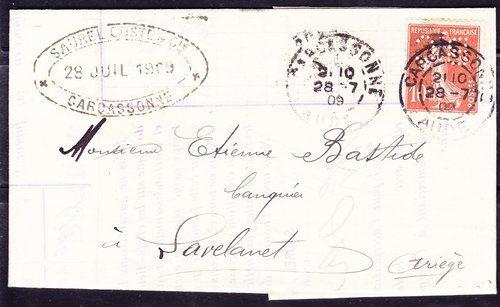 SAUREL COSTE & Cie
28 JUIL 1909
CARCASSONNE
CARCASSONNE
21 10
28 -7
09
AUDE
REPUBLIQUE FRANÇAISE
10
CARCASSONNE
21 10
28 -7
09
AUDE
Monsieur Etienne Bastide
banquier
à Lavelanet
Ariège